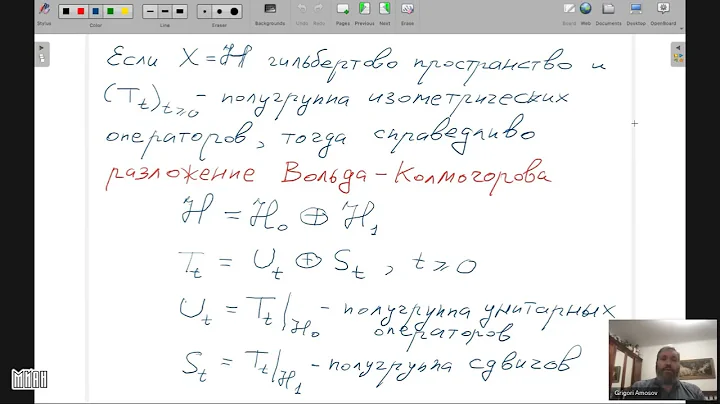 Status
Color
Line
Eraser
Backgrounds
Undo
Redo
Pages
Previous
Next
Erase
Board
Web
Documents
Desktop
Open-Sankoré
Если X = ℋ гильбертово пространство и
(T_t)_{t≥0} - полугруппа изометрических
операторов, тогда справедливо
разложение Вольда-Колмогорова
ℋ = ℋ₀ ⊕ ℋ₁
T_t = U_t ⊕ S_t, t≥0
U_t = T_t|_{ℋ₀} - полугруппа унитарных
операторов
S_t = T_t|_{ℋ₁} - полугруппа сдвигов
МИАН
Grigori Amosov